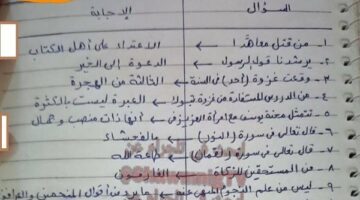 السؤال الإجابة
١- من قتل معاهدا ← الاعتداء على أهل الكتاب
٢- يرشدنا قول الرسول ← الدعوة إلى الخير
٣- وقعت غزوة (أحد) في السنة ← الثالثة من الهجرة
٤- من الدروس المستفادة من غزوة تبوك ← العبرة ليست بالكثرة
٥- تتمثل محنة يوسف مع امرأة العزيز في ← أنها ذات منصب وجمال
٦- قال تعالى في سورة (النور) ← بالفحشاء
٧- قال تعالى في سورة (لقمان) ← طاعة الله
٨- من المستحقين للزكاة ← الغارمون
٩- ليس من علم النجوم المنهي عنه ← ما يرد من أقوال المنجمين